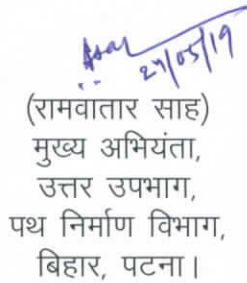 27/05/19
(रामवातार साह)
मुख्य अभियंता,
उत्तर उपभाग,
पथ निर्माण विभाग,
बिहार, पटना।